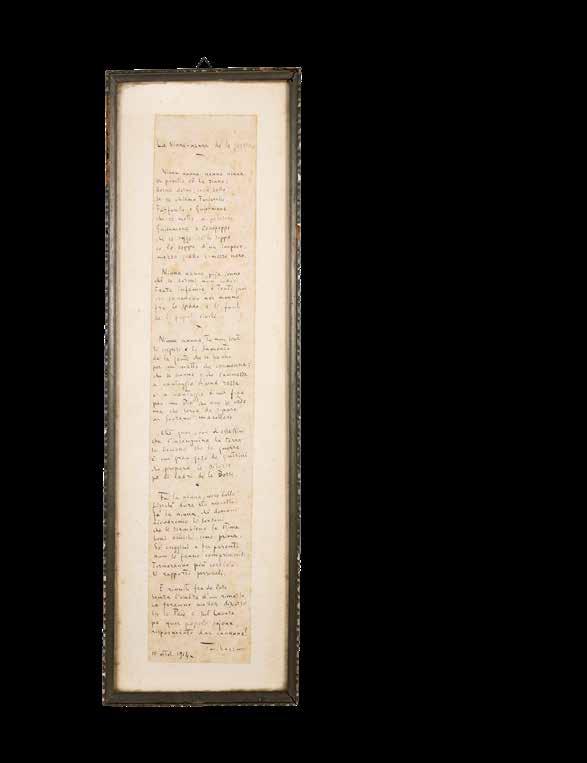 La Ninna-nanna de la guerra
Ninna nanna, nanna ninna
er pupetto vô la zinna:
dormi dormi, cocco bello
se no chiamo Farfarello
Farfarello e Gujermone
che se mette a pecorone
Gujermone e Ceccopeppe
che se regge co le zeppe
co le zeppe d'un impero
mezzo giallo e mezzo nero.
Ninna nanna, pija sonno
ché se dormi nun vedrai
tante infamie e tanti guai
che succedeno ner monno
fra le spade e li fucili
de li popoli civili.
Ninna nanna, tu nun senti
li sospiri e li lamenti
de la gente che se scanna
per un matto che commanna;
che se scanna e che s'ammazza
a vantaggio de la razza
o a vantaggio d'una fede
per un Dio che nun se vede
ma che serve da riparo
ar Sovrano macellaro.
Ché quer covo d'assassini
che c'insanguina la terra
sa benone che la guerra
è un gran giro de quatrini
che prepara le risorse
pe li ladri de le Borse.
Fa la ninna, cocco bello,
finché dura sto macello:
fa la ninna, ché domani
rivedremo li sovrani
che se scambieno la stima
boni amichi come prima.
So' cuggini e fra parenti
nun se fanno comprimenti:
torneranno più cordiali
li rapporti personali.
E riuniti fra de loro
senza l'ombra d'un rimorso
ce faranno un ber discorso
su la Pace e sul Lavoro
pe quer popolo cojone
risparmiato dar cannone!
ottob. 1914